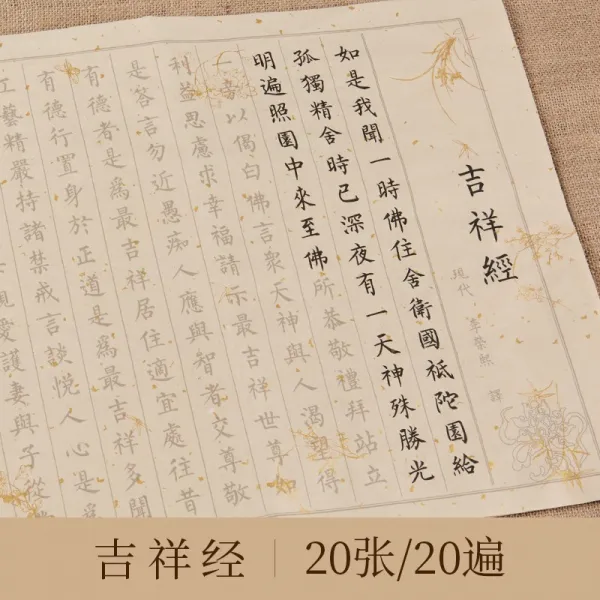 吉祥經
現代 李榮熙 譯
如是我聞一時佛住舍衛國祗陀園給
孤獨精舍時已深夜有一天神殊勝光
明遍照園中來至佛所恭敬禮拜站立
一旁以偈白佛言衆天神與人渴望得
利益思慮求幸福請示最吉祥世尊如
是答言勿近愚痴人應與智者交尊敬
有德者是爲最吉祥居住適宜處往昔
有德行置身於正道是爲最吉祥多聞
工藝精嚴持諸禁戒言談悅人心是爲
親愛護妻與子從
吉祥经
20张/20遍